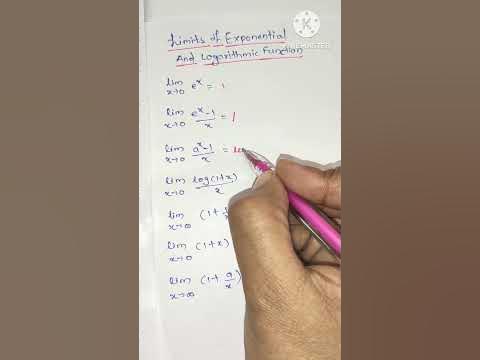 Limits of Exponential
And Logarithmic Function
lim x→0 e^x = 1
lim x→0 (e^x-1)/x = 1
lim x→0 (a^x-1)/x = lo
lim x→0 log(1+x)/x
lim x→∞ (1+1/
lim x→0 (1+x)
lim x→∞ (1+a/x)